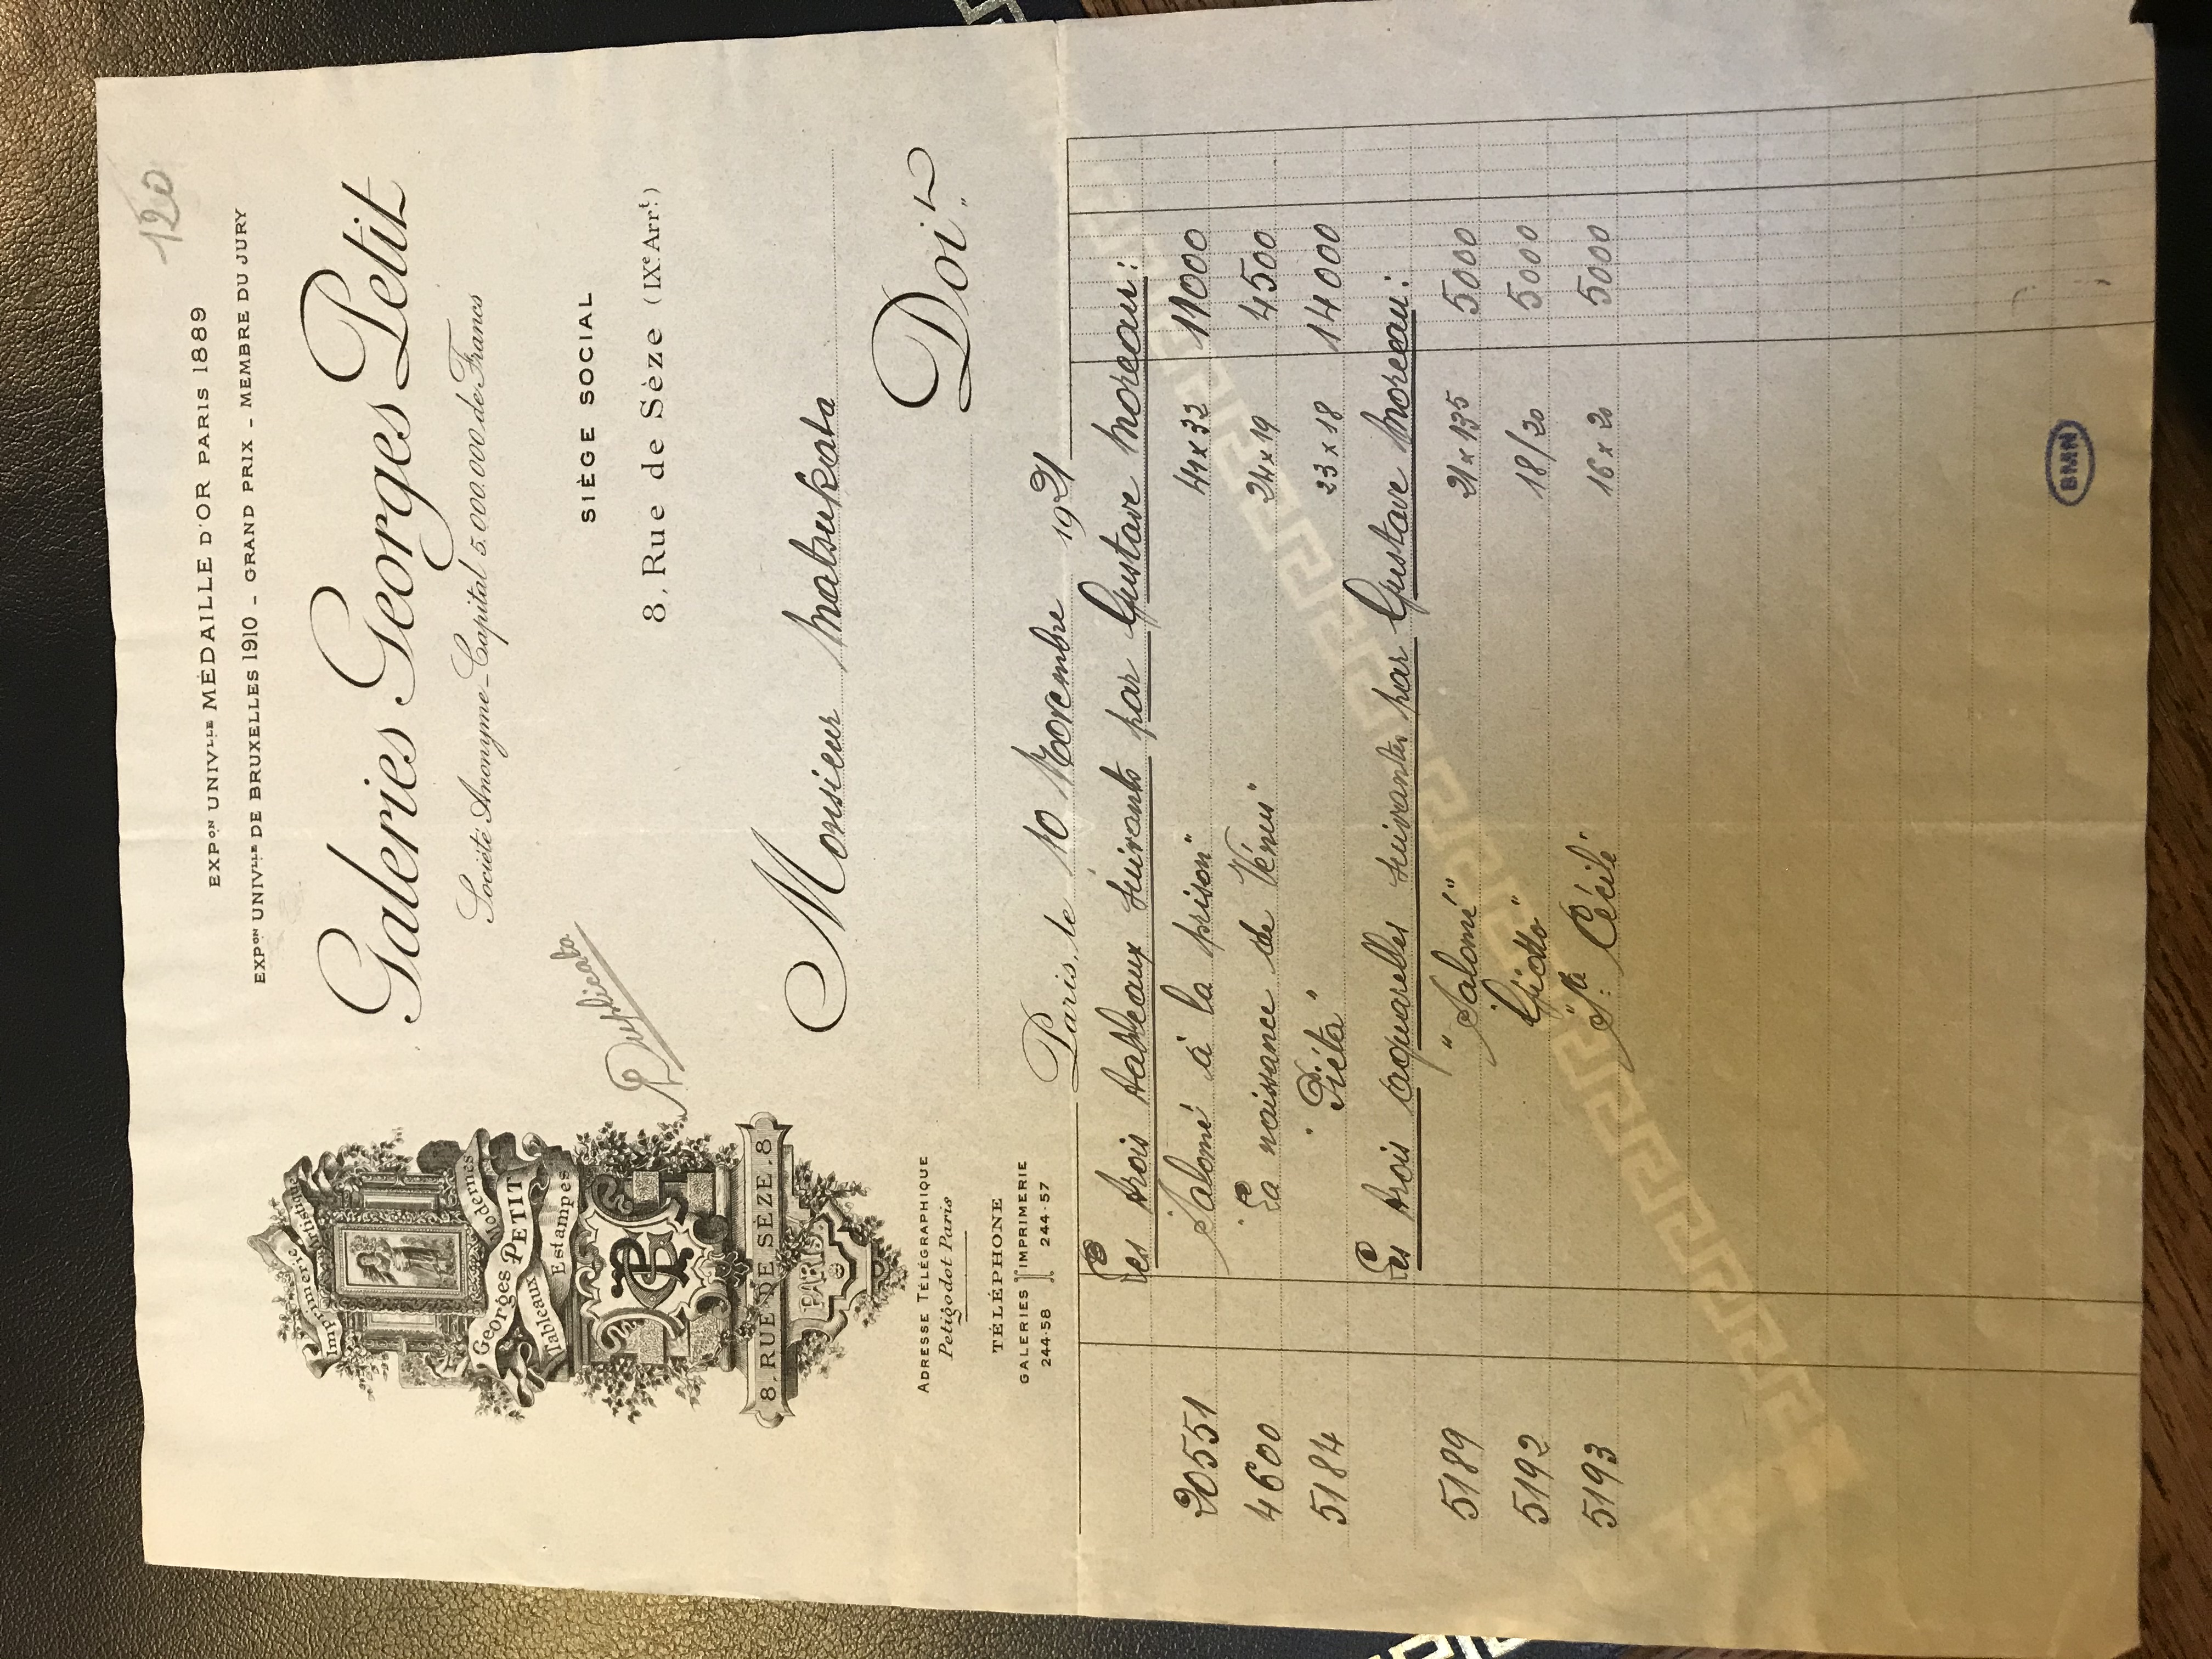 120
EXPON UNIVLLE MÉDAILLE D'OR PARIS 1889
EXPON UNIVLLE DE BRUXELLES 1910 - GRAND PRIX - MEMBRE DU JURY
Galeries Georges Petit
Société Anonyme - Capital 5.000.000 de Francs
Imprimerie Artistique
Modernes
Georges PETIT
Tableaux Estampes
GP
8, RUE DE SÈZE, 8
PARIS
Duplicata
SIÈGE SOCIAL
8, Rue de Sèze (IXe Arrt)
Monsieur Matsukata
ADRESSE TÉLÉGRAPHIQUE
Petigodot Paris
Doit
TÉLÉPHONE
GALERIES IMPRIMERIE
244-58 244-57
Paris, le 10 Novembre 1921
Les trois tableaux suivants par Gustave Moreau:
20551 "Salomé à la prison" 41 x 32 11000
4600 "La naissance de Vénus" 24 x 19 4500
5184 "Piéta" 23 x 18 14000
Les trois aquarelles suivantes par Gustave Moreau:
5189 "Salomé" 21 x 135 5000
5192 "Giotto" 18/20 5000
5193 "Ste Cécile" 16 x 20 5000
BMN